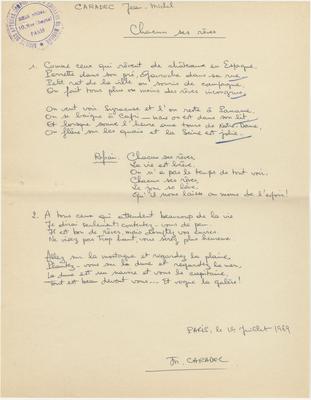 CARADEC Jean-Michel
Chacun ses rêves
1. Comme ceux qui rêvent de châteaux en Espagne
Perrette dans son pré, dans sa rue
Petit rat de la ville ou souris de campagne
On fait tous plus ou moins des rêves incongrus
On veut voir Syracuse et l'on reste à Paname
On se baigne à Capri — mais on est dans son lit
Et lorsque sonne l'heure aux tours de Notre Dame,
On flâne sur les quais et la Seine est jolie.
Refrain. Chacun ses rêves
La vie est brève
On n'a pas le temps de tout voir.
Chacun ses rêves
Le jour se lève
Qu'il nous laisse au moins de l'espoir!
2. A tous ceux qui attendent beaucoup de la vie
Je dirai seulement contentez-vous de peu
Il est bon de rêver, mais
Ne visez pas trop haut, vous serez plus heureux.
Allez sur la montagne et regardez la plaine,
Plantez-vous sur la dune et regardez la mer,
La dune est un navire et vous le capitaine,
Tout est beau devant vous... Et vogue la galère!
PARIS, le 15 Juillet 1969
JM. CARADEC